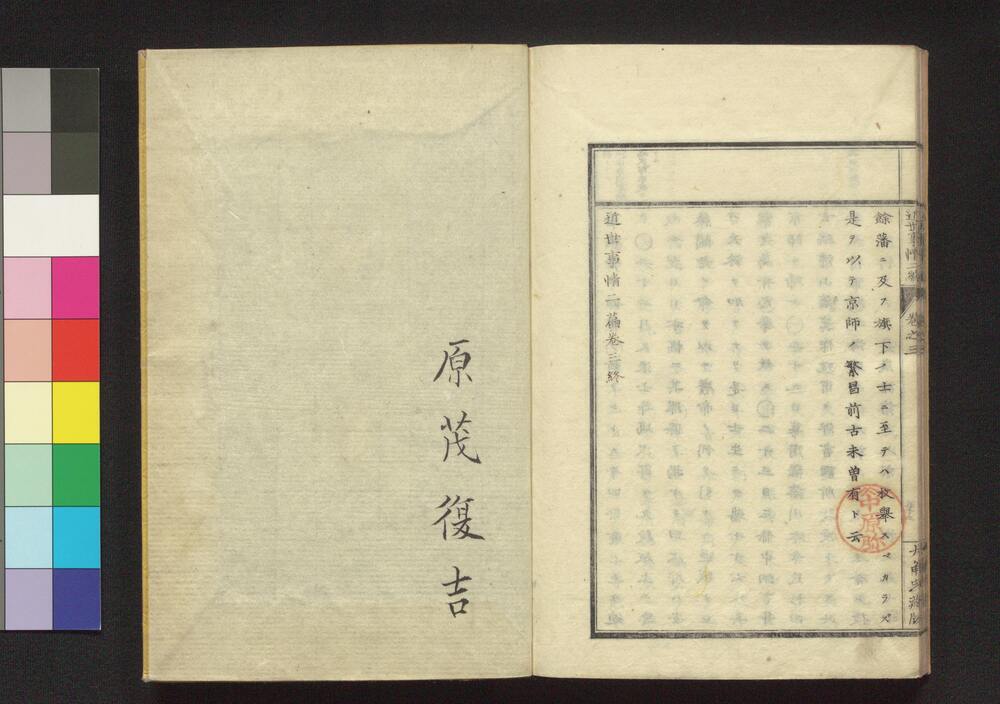 餘藩ニ及フ旗下ノ士ニ至テハ枚擧スベカラズ
是ヲ以テ京師ノ繁昌前古未曾有ト云
近世事情二篇卷三終
近世事情二篇
卷之三
中原弥
原茂復吉